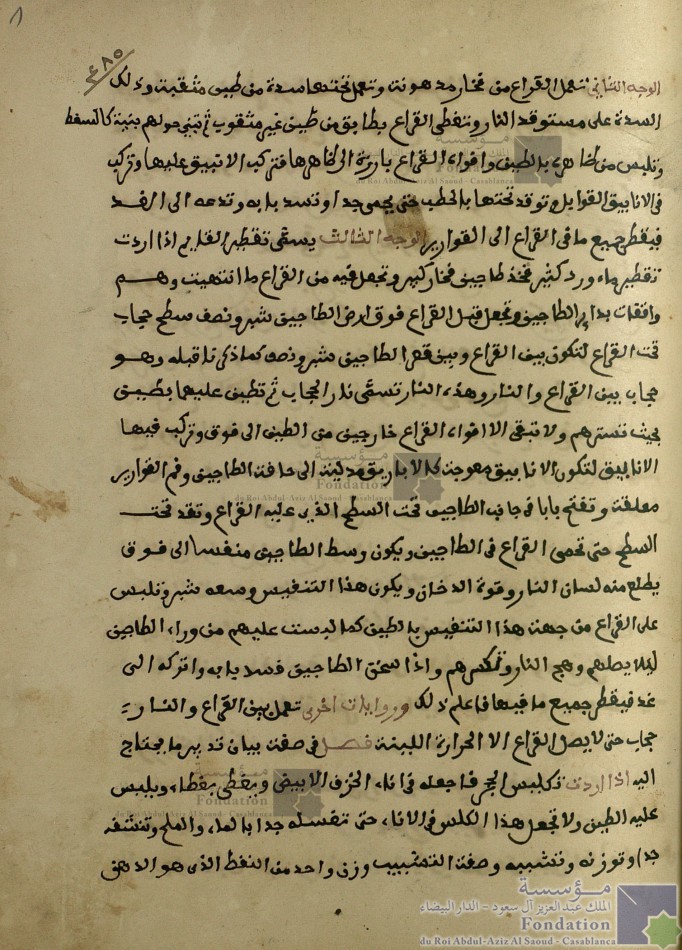 ٨
٤٨٥
الوجه الثاني تعمل القراع من فخار مدهونة وتعمل تحتها سدة من طين مثقبة وذلك
السدة على مستوقد النار وتغطى القراع بطابق من طين غير مثقوب ثم تبنى حولهم بنية كالسفط
وتلبس من ظاهره بالطين وافواه القراع بارزة الى ظاهرها فتركب الانبيق عليها وتركب
فى الانابيق القوابل وتوقد تحتها بالحطب حتى يحمى جدا وتسد بابه وتدعه الى الغد
فيقطر جميع ما فى القراع الى القوارير الوجه الثالث يسمى تقطير اذا اردت
تقطير ماء ورد كثير فخذ طاجين فخار كبير وتجعل فيه من القراع ما انتهيت وهم
واقفات بداير الطاجين وتجعل قبل القراع فوق ارض الطاجين شبر ونصف سطح حجاب
تحت القراع لتكون بين القراع وبين قعر الطاجين شبر ونصف كما ذكرنا قبله وهو
حجاب بين القراع والنار وهذه النار تسمى نار الحجاب ثم تطين عليها بطين
بحيث تسترهم ولا تبقى الا افواه القراع خارجين من الطين الى فوق وتركب فيها
الانابيق لتكون الانابيق معوجة كالاباريق مدلية الى حافة الطاجين وفم القوارير
معلقة وتفتح بابا فى جانب الطاجين تحت السطح الذى عليه القراع وتقد تحت
السطح حتى تحمى القراع فى الطاجين ويكون وسط الطاجين منفسا الى فوق
يطلع منه لسان النار وقوة الدخان ويكون هذا التنفيس وسعه شبر وتلبس
على القراع من جهت هذا التنفيس بالطين كما لبست عليهم من وراء الطاجين
ليلا يصلهم وهج النار وتكسرهم واذا سخن الطاجين فسد بابه واتركه الى
غد فيقطر جميع ما فيها فاعلم ذلك وروايات اخرى تعمل بين القراع والنار
حجاب حتى لا يصل القراع الا الحرارة اللينة فصل فى صفة بيان تدبير ما يحتاج
اليه اذا اردت تكليس الحجر فاجعله فى اناء الخزف الابيض ويغطى بغطاء ويلبس
عليه الطين ولا تجعل هذا الكلس فى الاناء حتى تغسله جدا بالماء والملح وتنشفه
جدا وتوزنه وتشببه وصفة التشبيب وزن واحد من النفط الذى هو الدهن
مؤسسة
الملك عبد العزيز آل سعود - الدار البيضاء
Fondation
du Roi Abdul-Aziz Al Saoud - Casablanca